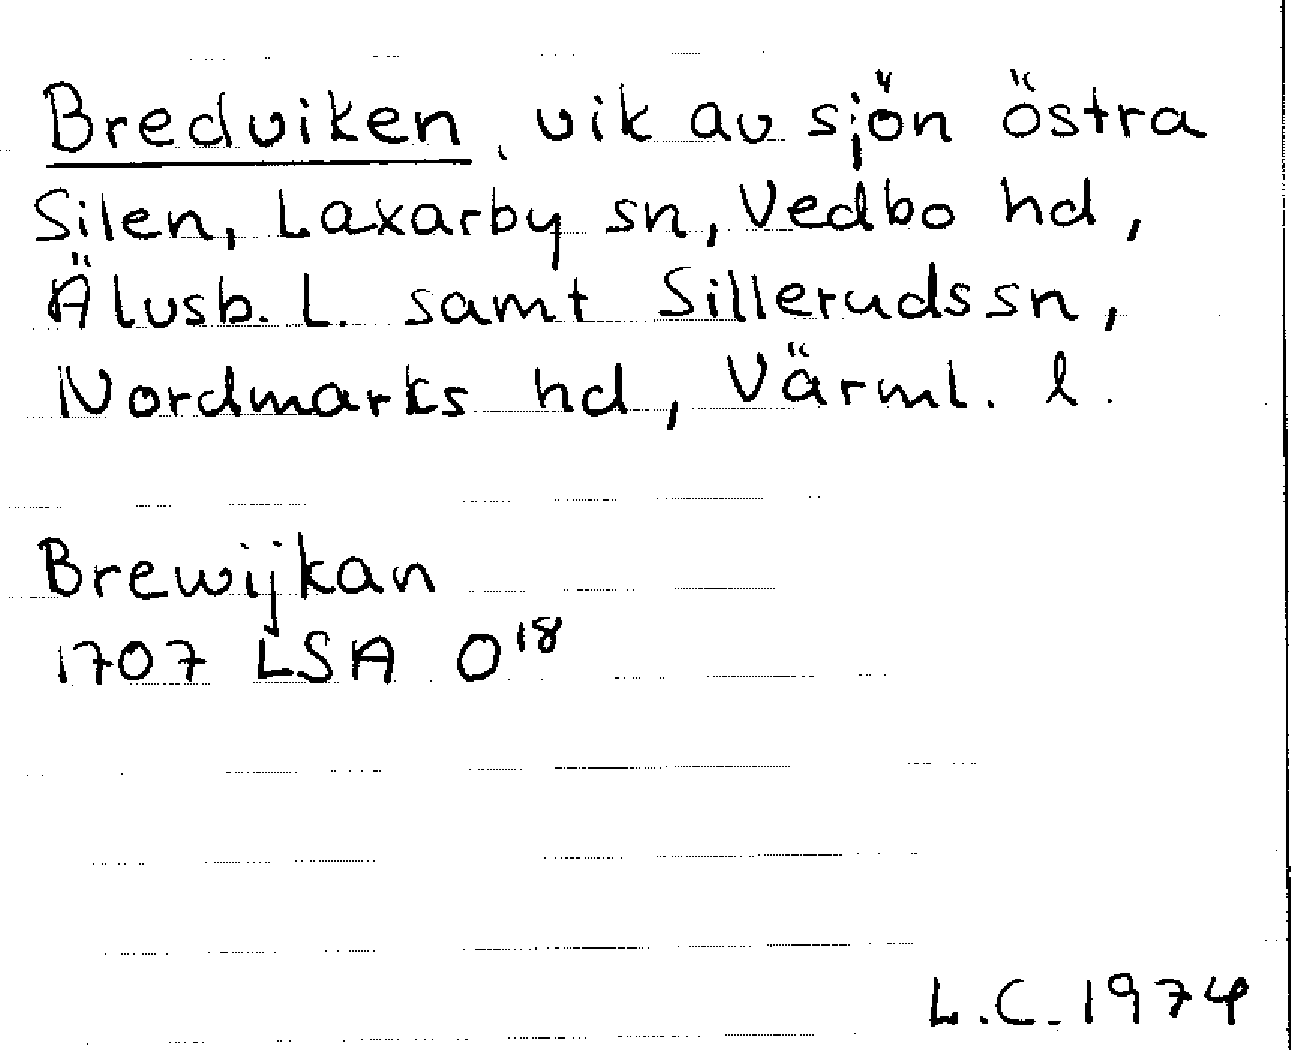 Bredviken, vik av sjön östra
Silen, Laxarby sn, Vedbo hd,
Älvsb. L. samt Silleruds sn,
Nordmarks hd, Värml. l.
Brewijkan
1707 LSA O18
L.C. 1974